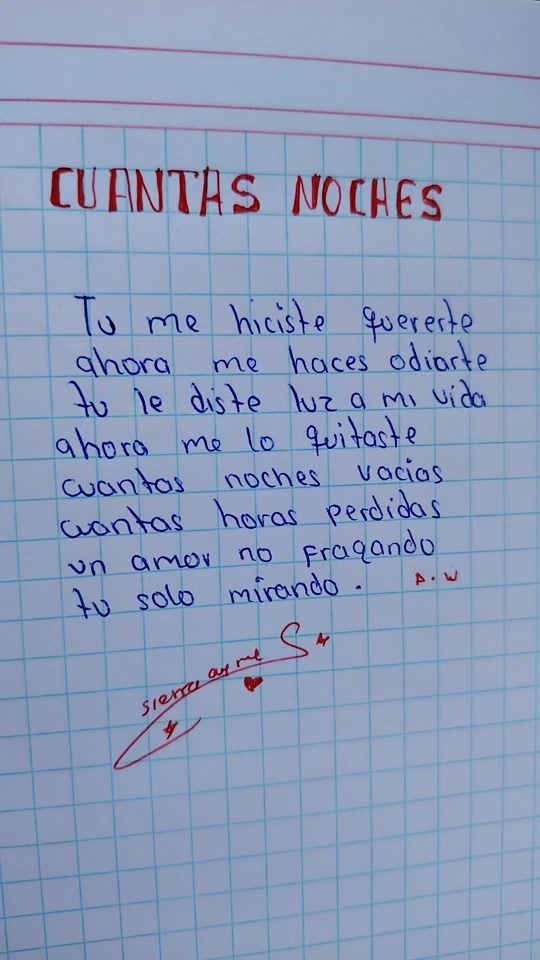 CUANTAS NOCHES
Tu me hiciste quererte
ahora me haces odiarte
tu le diste luz a mi vida
ahora me lo quitaste
cuantas noches vacias
cuantas horas perdidas
un amor no fragando
tu solo mirando. A.W
S